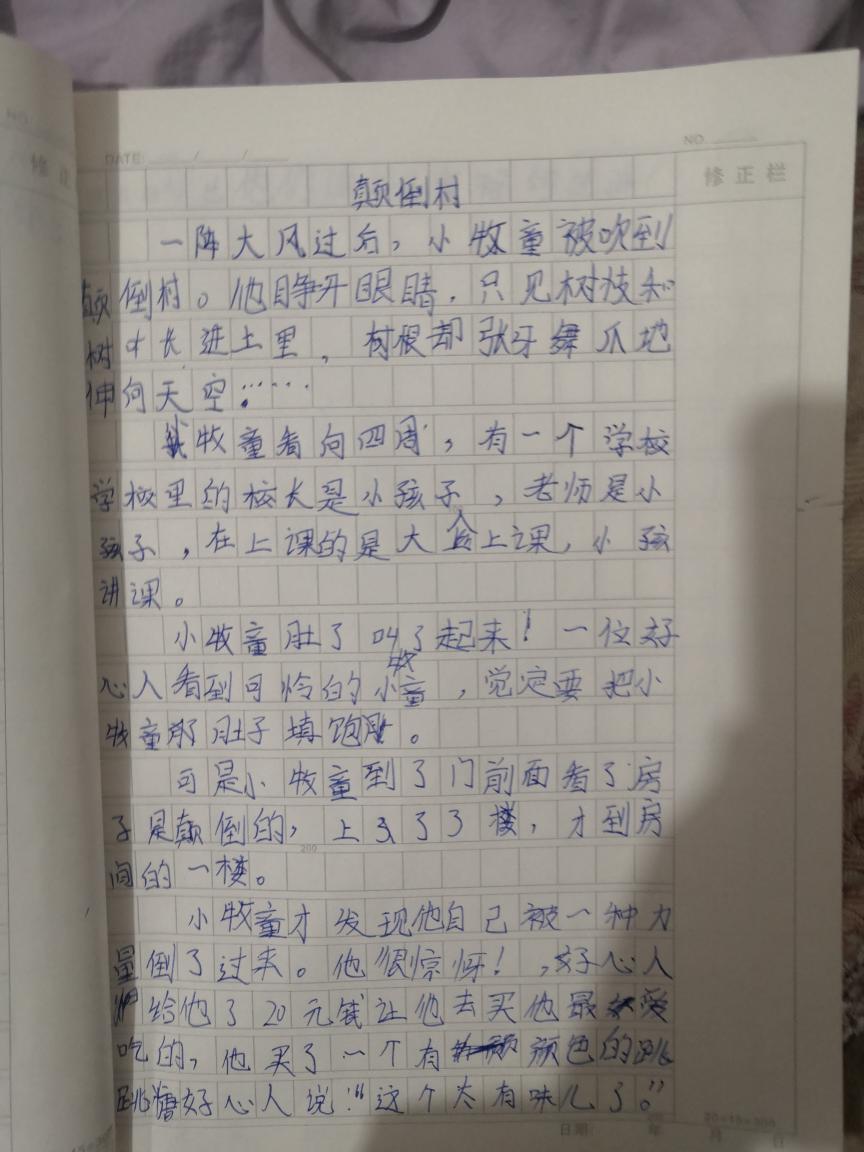 NO.
修正
DATE: / /
NO.
修正栏
颠倒村
一阵大风过后，小牧童被吹到
颠倒村。他睁开眼睛，只见树枝和
树干长进土里，树根却张牙舞爪地
伸向天空……
牧童看向四周，有一个学校
学校里的校长是小孩子，老师是小
孩子，在上课的是大人上课，小孩
讲课。
小牧童肚了叫了起来！一位好
心人看到可怜的小牧童，觉定要把小
牧童那肚子填饱。
可是小牧童到了门前面看了房
子是颠倒的，上了3楼，才到房
间的一楼。
200
小牧童才发现他自己被一种力
量倒了过来。他很惊呀！，好心人
给他了20元钱让他去买他最爱
吃的，他买了一个有颜色的跳
跳糖好心人说：“这个太有味儿了。”
20×15=300
日期: 年 月 日